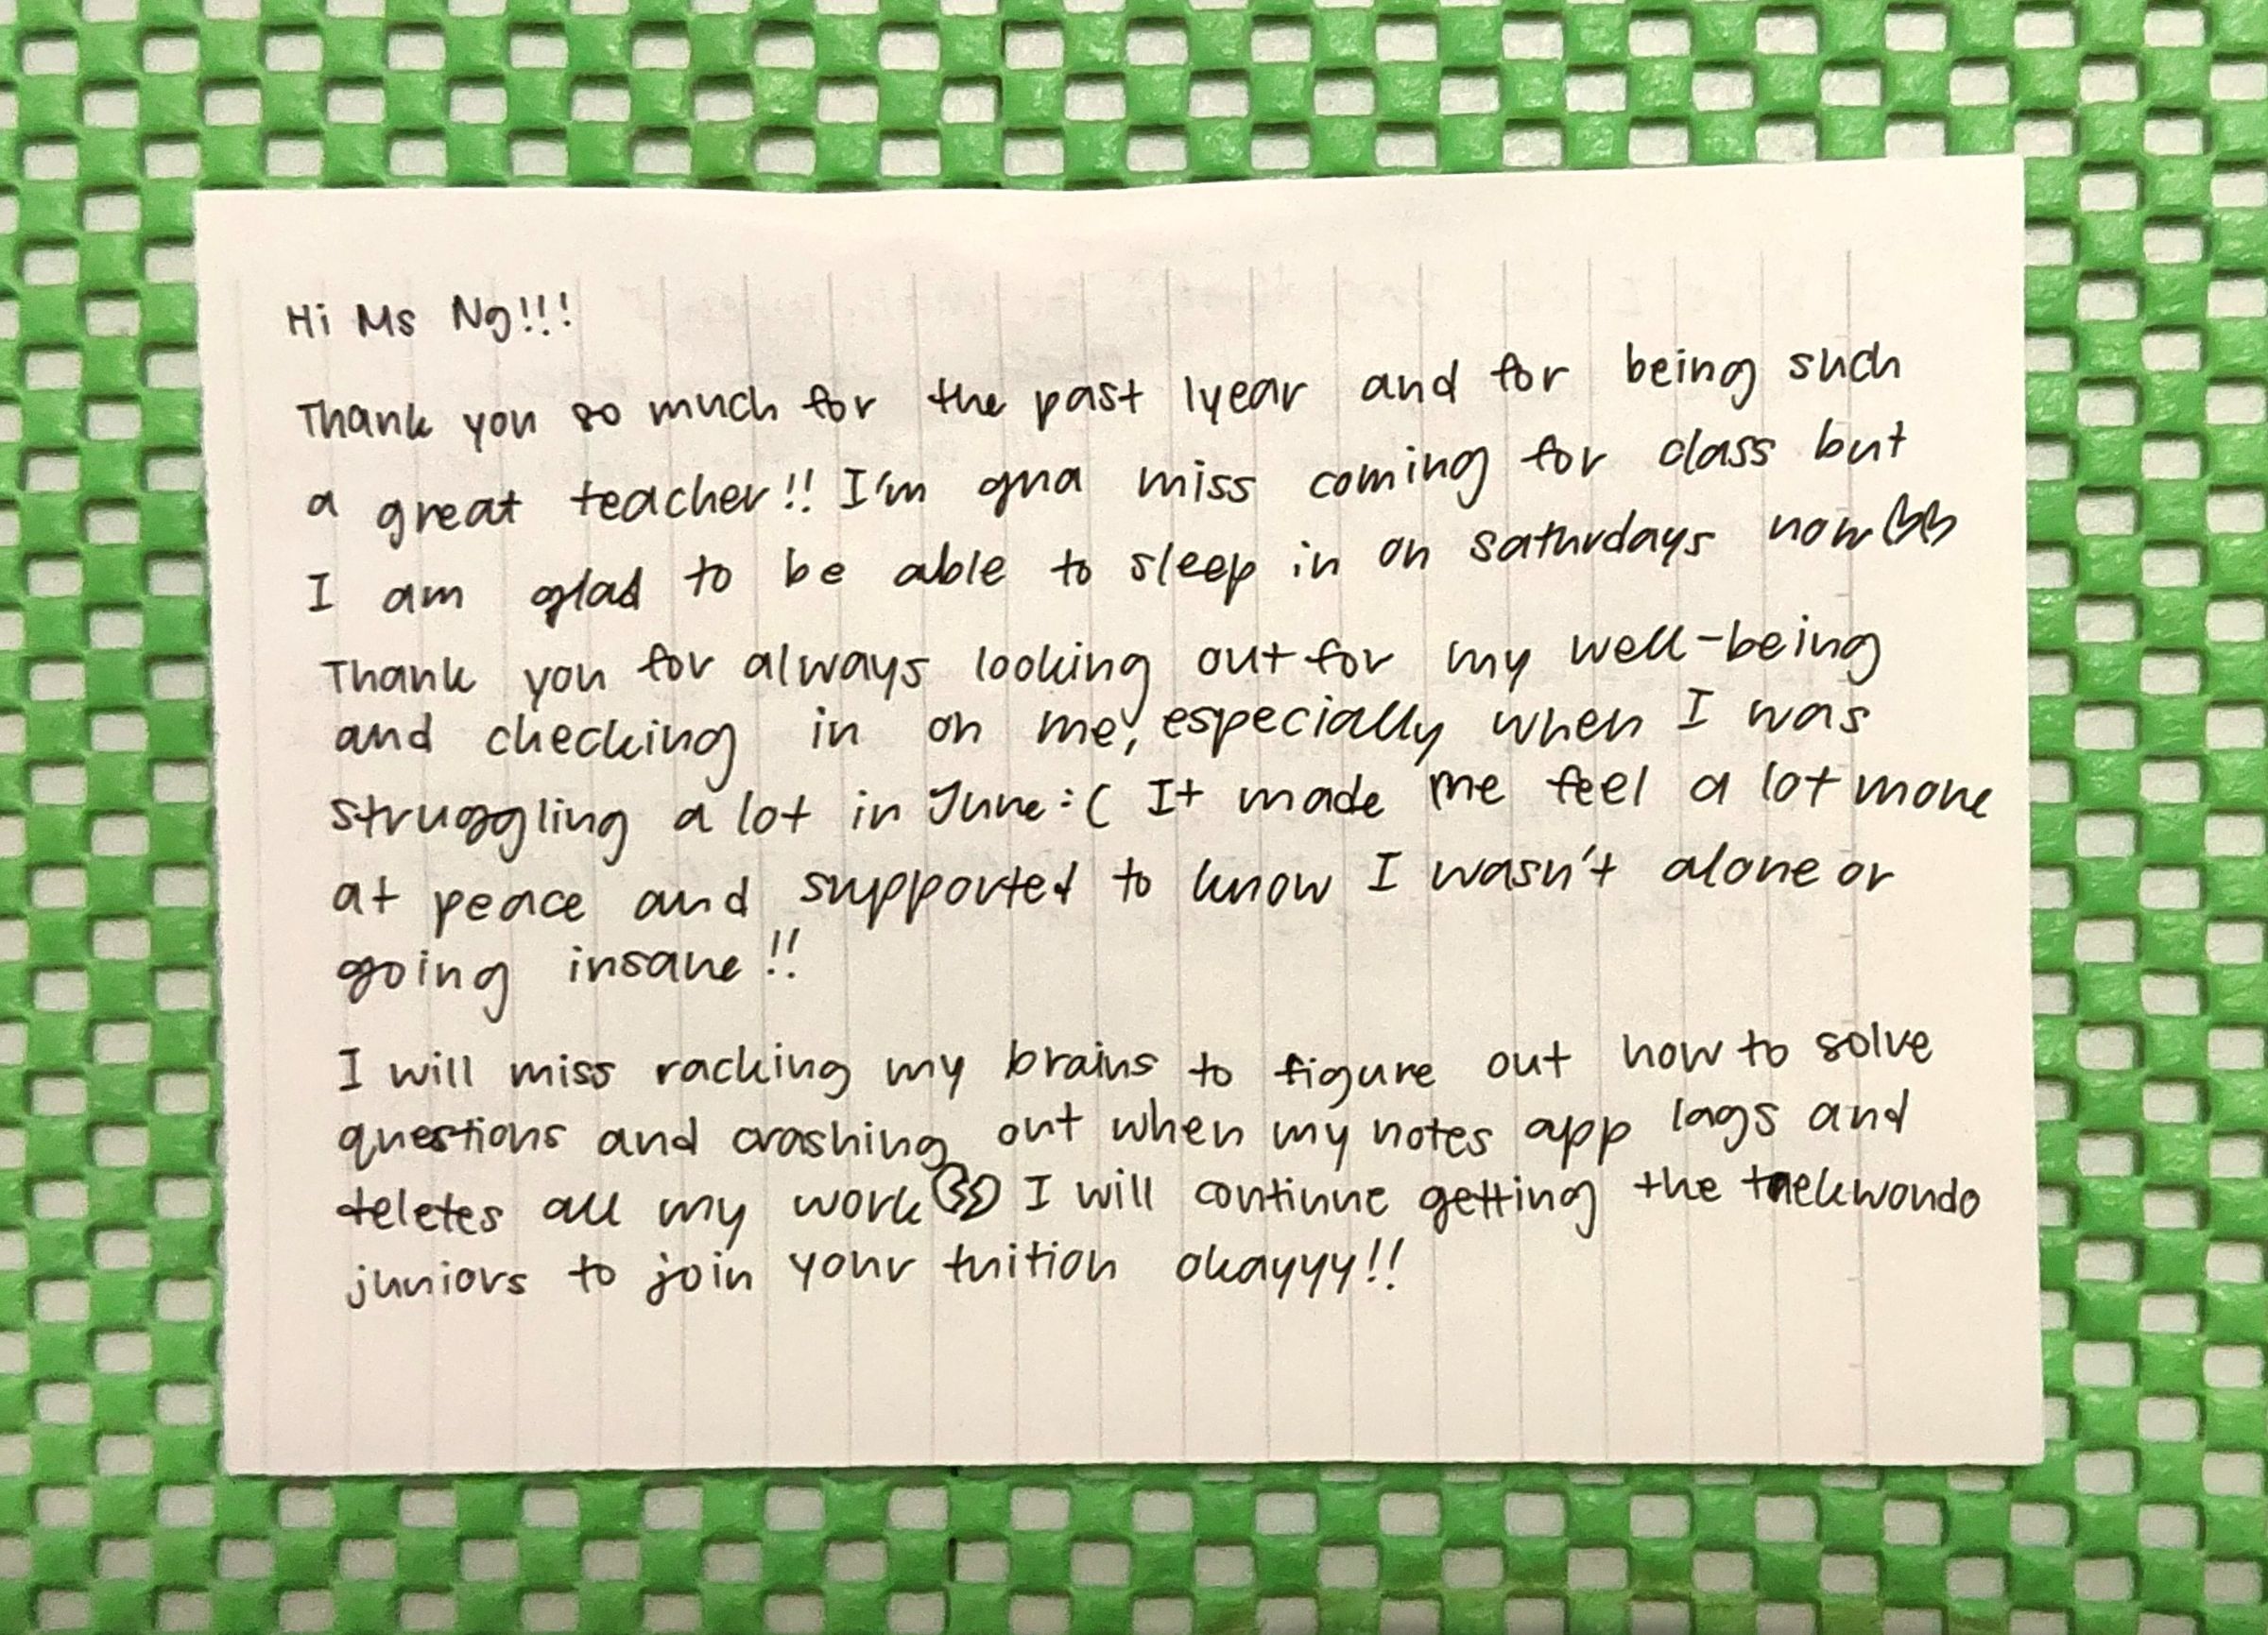 Hi Ms Ng!!!
Thank you so much for the past 1year and for being such
a great teacher!! I'm gna miss coming for class but
I am glad to be able to sleep in on saturdays now
Thank you for always looking out for my well-being
and checking in on me, especially when I was
struggling a lot in June :( It made me feel a lot more
at peace and supported to know I wasn't alone or
going insane!!
I will miss racking my brains to figure out how to solve
questions and crashing out when my notes app lags and
deletes all my work I will continue getting the taekwondo
juniors to join your tuition okayyy!!